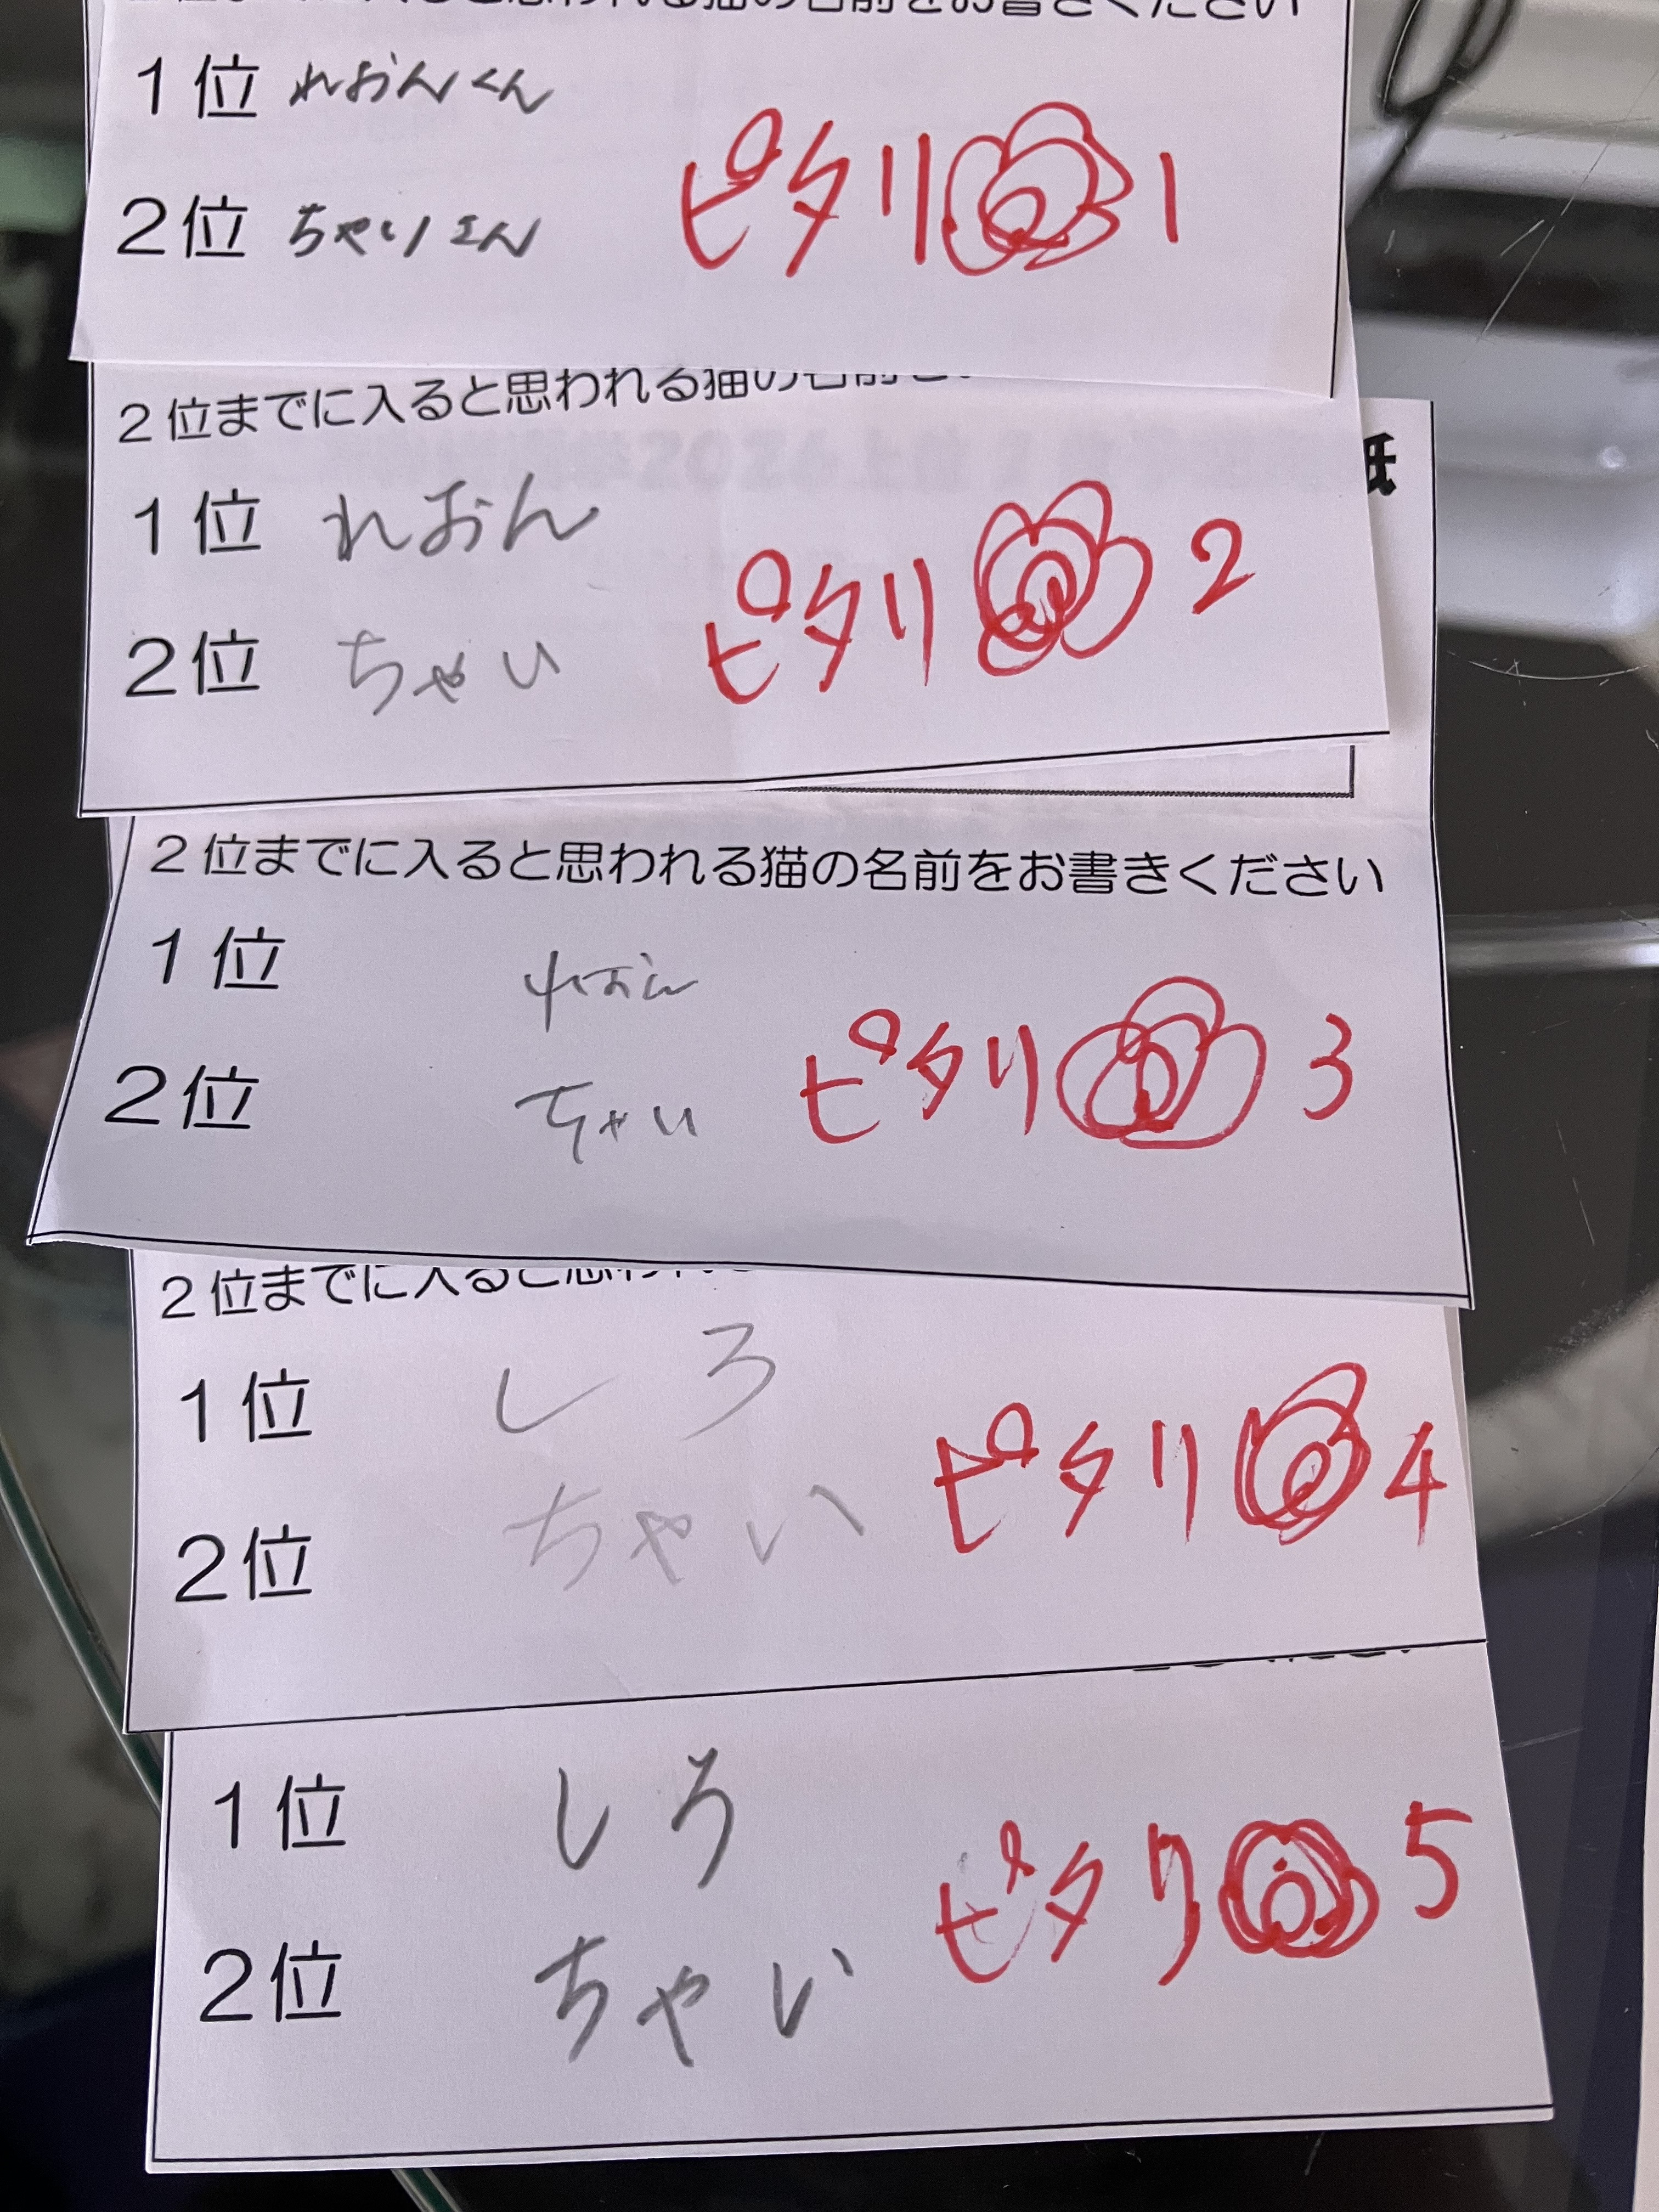 2位までに入ると思われる猫の名前をお書きください
1位 れおんくん
2位 ちゃい
ピタリ 1
2位までに入ると思われる猫の名前を
1位 れおん
2位 ちゃい
ピタリ 2
紙
2位までに入ると思われる猫の名前をお書きください
1位 れおん
2位 ちゃい
ピタリ 3
2位までに入ると思われる
1位 しろ
2位 ちゃい
ピタリ 4
1位 しろ
2位 ちゃい
ピタリ 5